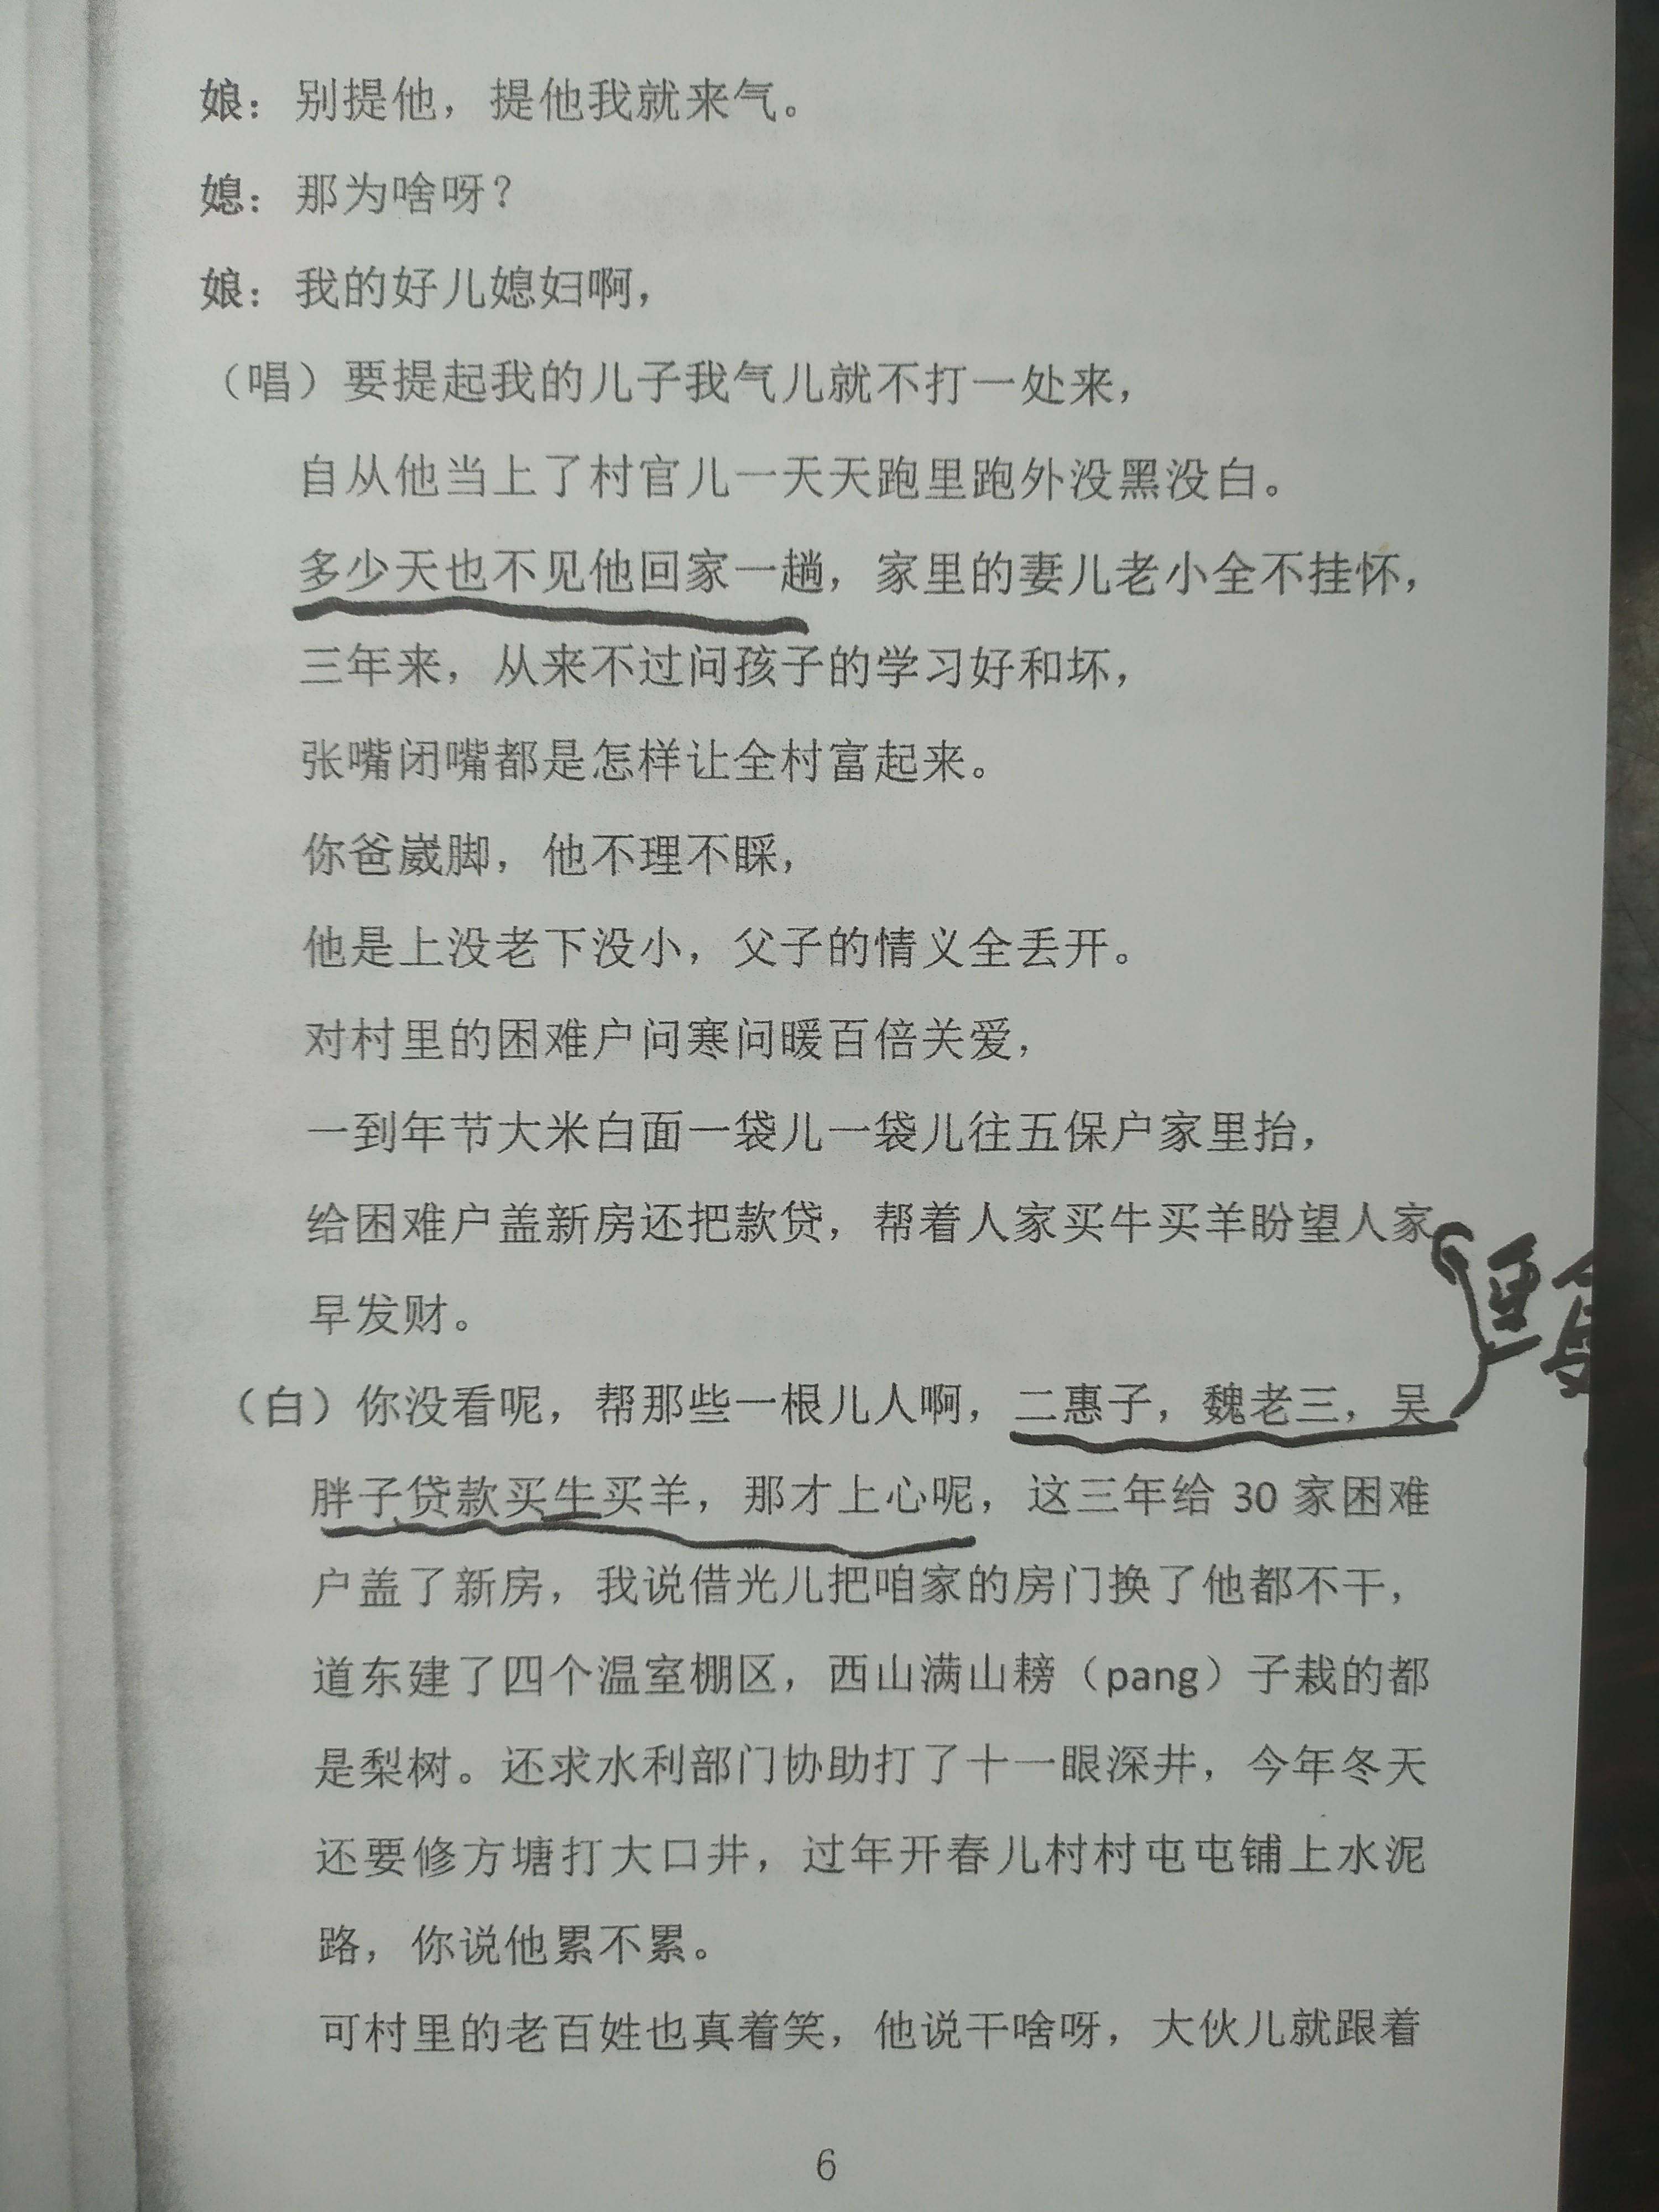 娘：别提他，提他我就来气。
媳：那为啥呀？
娘：我的好儿媳妇啊，
（唱）要提起我的儿子我气儿就不打一处来，
自从他当上了村官儿一天天跑里跑外没黑没白。
多少天也不见他回家一趟，家里的妻儿老小全不挂怀，
三年来，从来不过问孩子的学习好和坏，
张嘴闭嘴都是怎样让全村富起来。
你爸崴脚，他不理不睬，
他是上没老下没小，父子的情义全丢开。
对村里的困难户问寒问暖百倍关爱，
一到年节大米白面一袋儿一袋儿往五保户家里抬，
给困难户盖新房还把款贷，帮着人家买牛买羊盼望人家
早发财。
（白）你没看呢，帮那些一根儿人啊，二惠子，魏老三，吴
胖子贷款买牛买羊，那才上心呢，这三年给 30 家困难
户盖了新房，我说借光儿把咱家的房门换了他都不干，
道东建了四个温室棚区，西山满山耪（pang）子栽的都
是梨树。还求水利部门协助打了十一眼深井，今年冬天
还要修方塘打大口井，过年开春儿村村屯屯铺上水泥
路，你说他累不累。
可村里的老百姓也真着笑，他说干啥呀，大伙儿就跟着
6